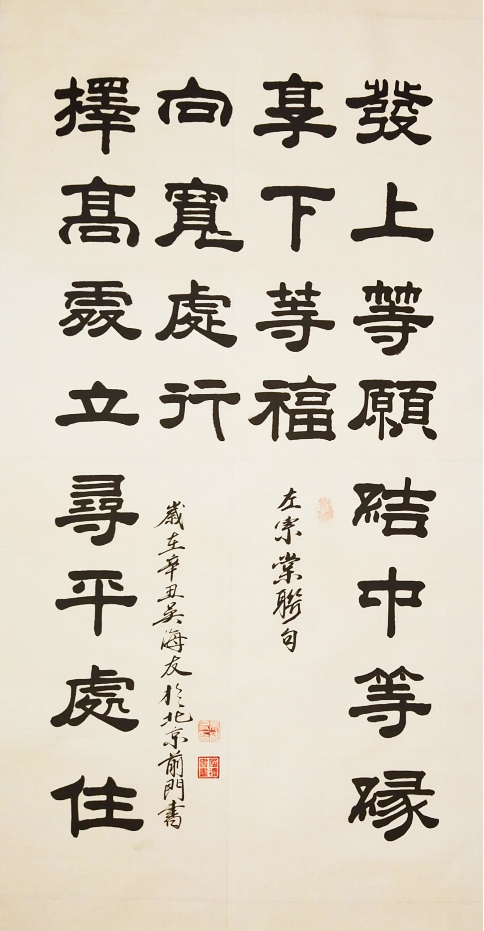 發上等願結中等緣
享下等福
左宗棠聯句
擇高處立尋平處住
向寬處行
歲在辛丑吴海友於北京前門書